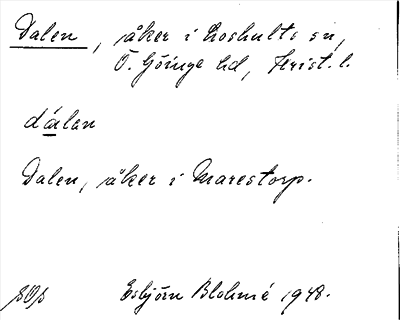 Dalen, åker i Loshults sn,
Ö. Göinge hd, Krist. l.
dálen
Dalen, åker i Marestorp.
Esbjörn Blohmé 1948.